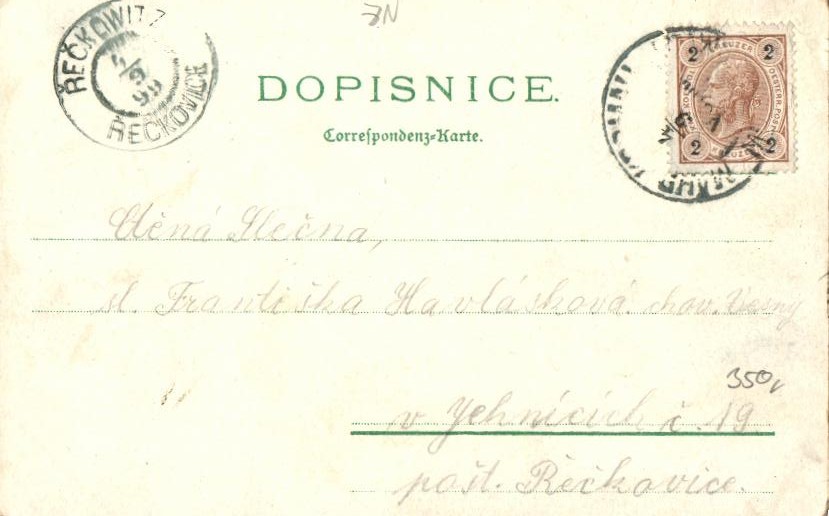 ŘEČKOWITZ
4/9 99
ŘEČKOVICE
DOPISNICE.
Correspondenz-Karte.
2 KREUZER 2
2 KREUZER 2
Ctěná Slečna,
sl. Františka Havlásková. chov. Vesny
350,
v Jehnicích č. 19.
pošt. Řečkovice.